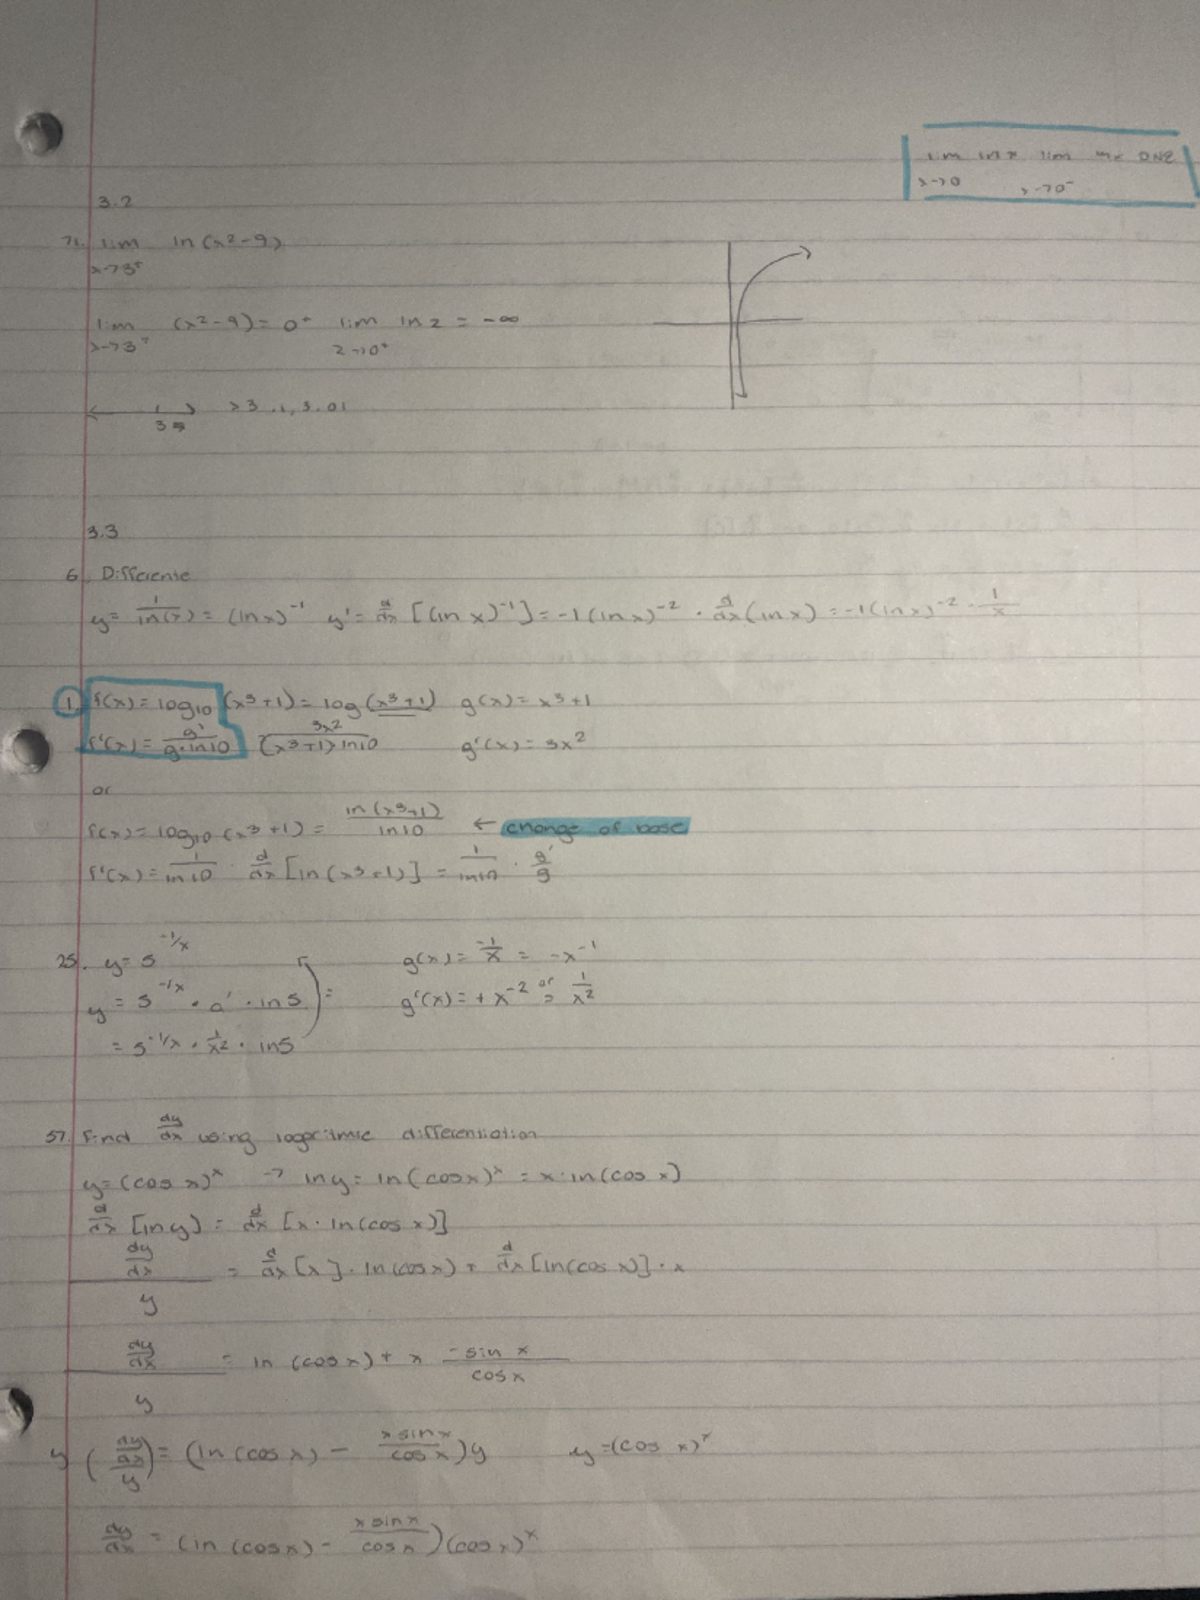 lim ln x lim ln x DNE
x→0 x→0⁻
3.2
71. lim ln (x²-9)
x→3⁺
lim (x²-9) = 0⁺ lim ln z = -∞
x→3⁺ z→0⁺
>3 .1, 3.01
3
3.3
6. Differente
y = 1/ln(x) = (ln x)⁻¹ y' = d/dx [(ln x)⁻¹] = -1(ln x)⁻² · d/dx (ln x) = -1(ln x)⁻² · 1/x
1. f(x) = log₁₀ (x³+1) = log (x³+1) g(x) = x³+1
f'(x) = g'/(g·ln10) 3x²/((x³+1)·ln10) g'(x) = 3x²
or
f(x) = log₁₀ (x³+1) = ln(x³+1)/ln10 ← change of base
f'(x) = 1/ln10 · d/dx [ln(x³+1)] = 1/ln10 · g'/g
25. y = 5^(-1/x) g(x) = -1/x = -x⁻¹
y = 5^(-1/x) · g' · ln5 = g'(x) = +x⁻² or = 1/x²
= 5^(-1/x) · 1/x² · ln5
57. Find dy/dx using logaritmic differentiation
y = (cos x)ˣ → ln y = ln(cos x)ˣ = x·ln(cos x)
d/dx [ln y] = d/dx [x · ln(cos x)]
(dy/dx)/y = d/dx [x] · ln(cos x) + d/dx [ln(cos x)] · x
(dy/dx)/y = ln (cos x) + x (-sin x)/(cos x)
y ((dy/dx)/y) = (ln (cos x) - (x sin x)/(cos x)) y y = (cos x)ˣ
dy/dx = (ln (cos x) - (x sin x)/(cos x)) (cos x)ˣ